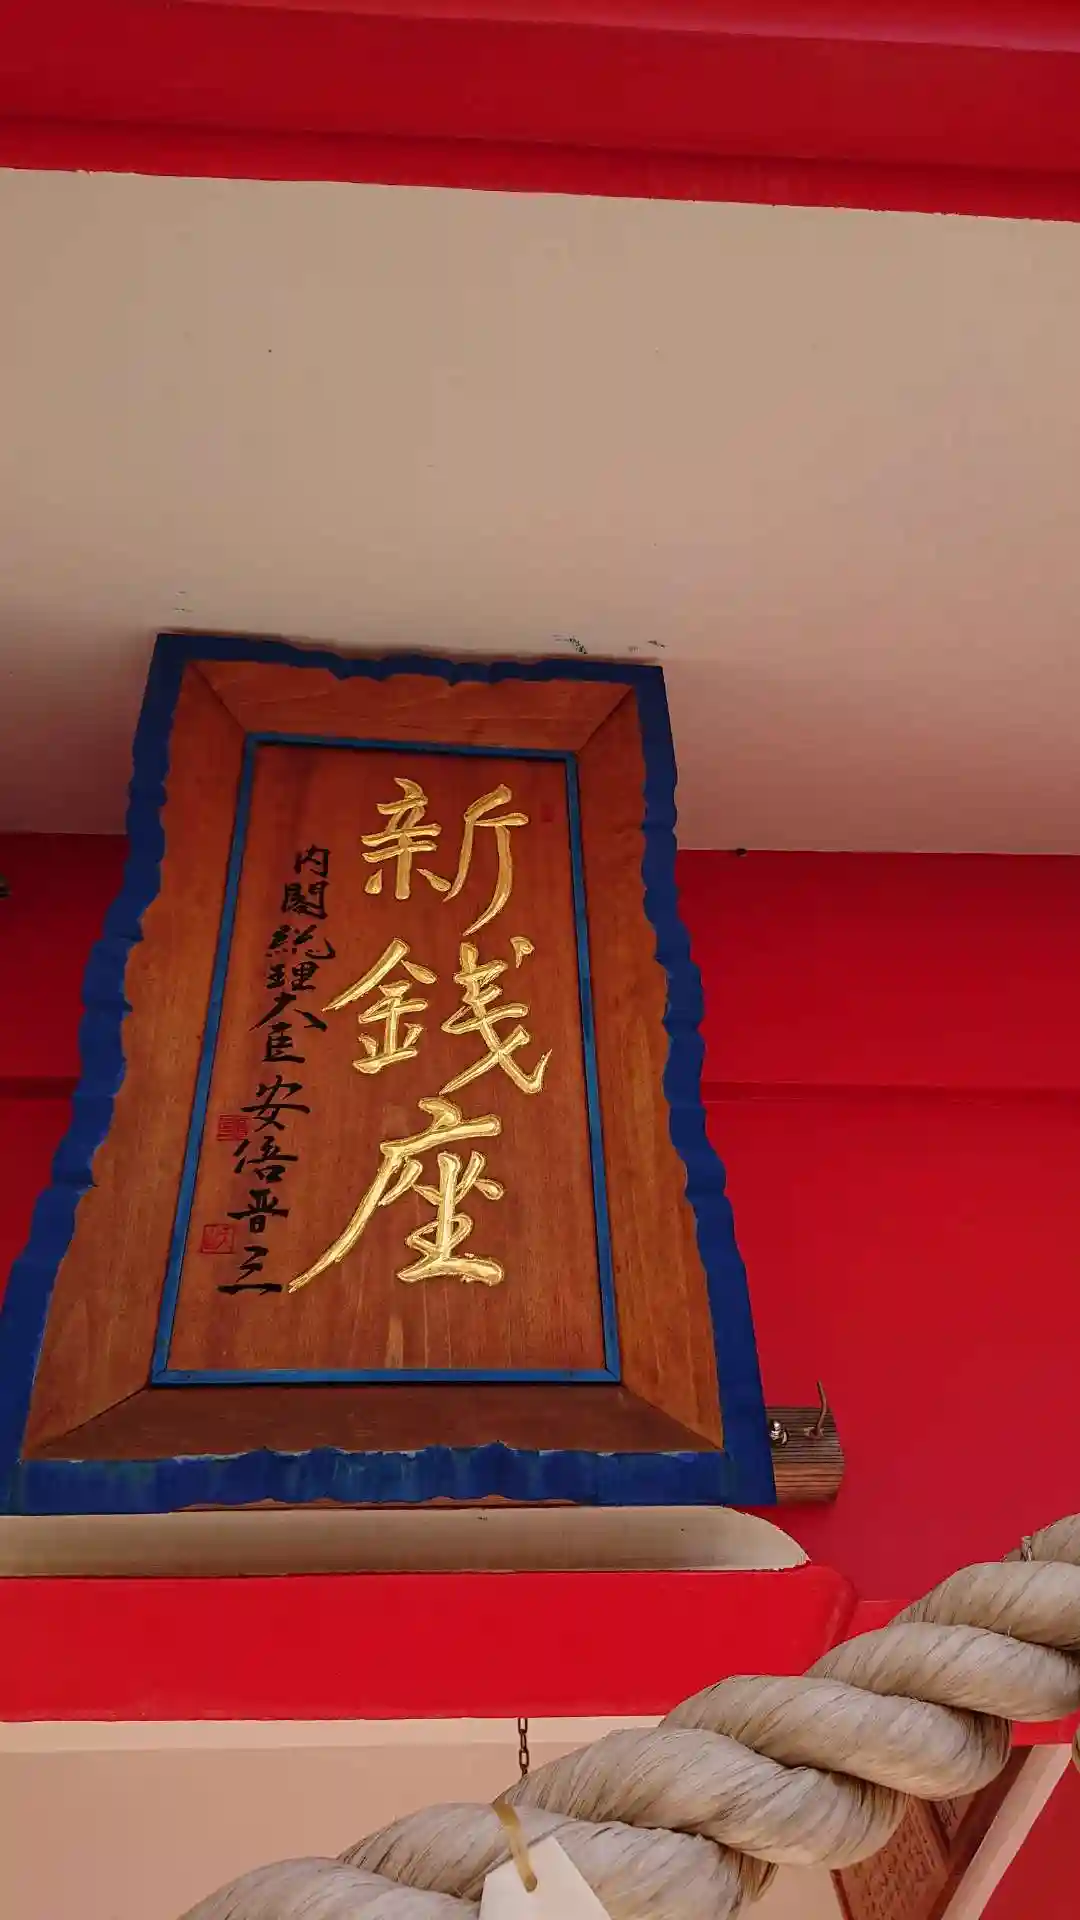 新銭座
内閣総理大臣 安倍晋三